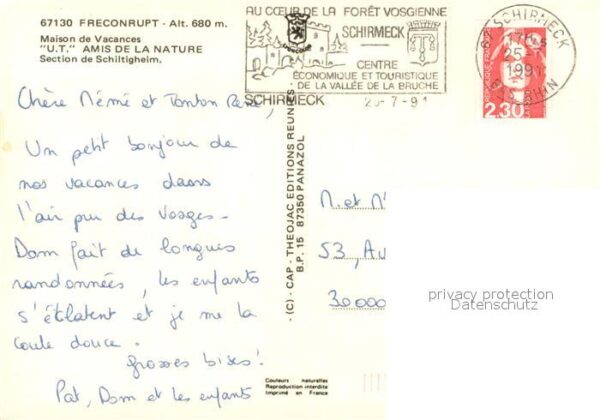 67130 FRECONRUPT - Alt. 680 m.
Maison de Vacances
"U.T." AMIS DE LA NATURE
Section de Schiltigheim.
AU CŒUR DE LA FORÊT VOSGIENNE
SCHIRMECK
CENTRE
ÉCONOMIQUE ET TOURISTIQUE
DE LA VALLÉE DE LA BRUCHE
SCHIRMECK
25-7-91
67 SCHIRMECK
17H
25-7
1991
BAS RHIN
2,30
Chère Mémé et Tonton René,
Un petit bonjour de
nos vacances dans
l'air pur des Vosges.
Dom fait de longues
randonnées, les enfants
s'éclatent et je me la
coule douce.
Grosses bises!
Pat, Dom et les enfants
- (C) - CAP - THEOJAC EDITIONS REUNIES -
B.P. 15 87350 PANAZOL
M. et M
53, Au
30000
privacy protection
Datenschutz
Couleurs naturelles
Reproduction interdite
Imprimé en France